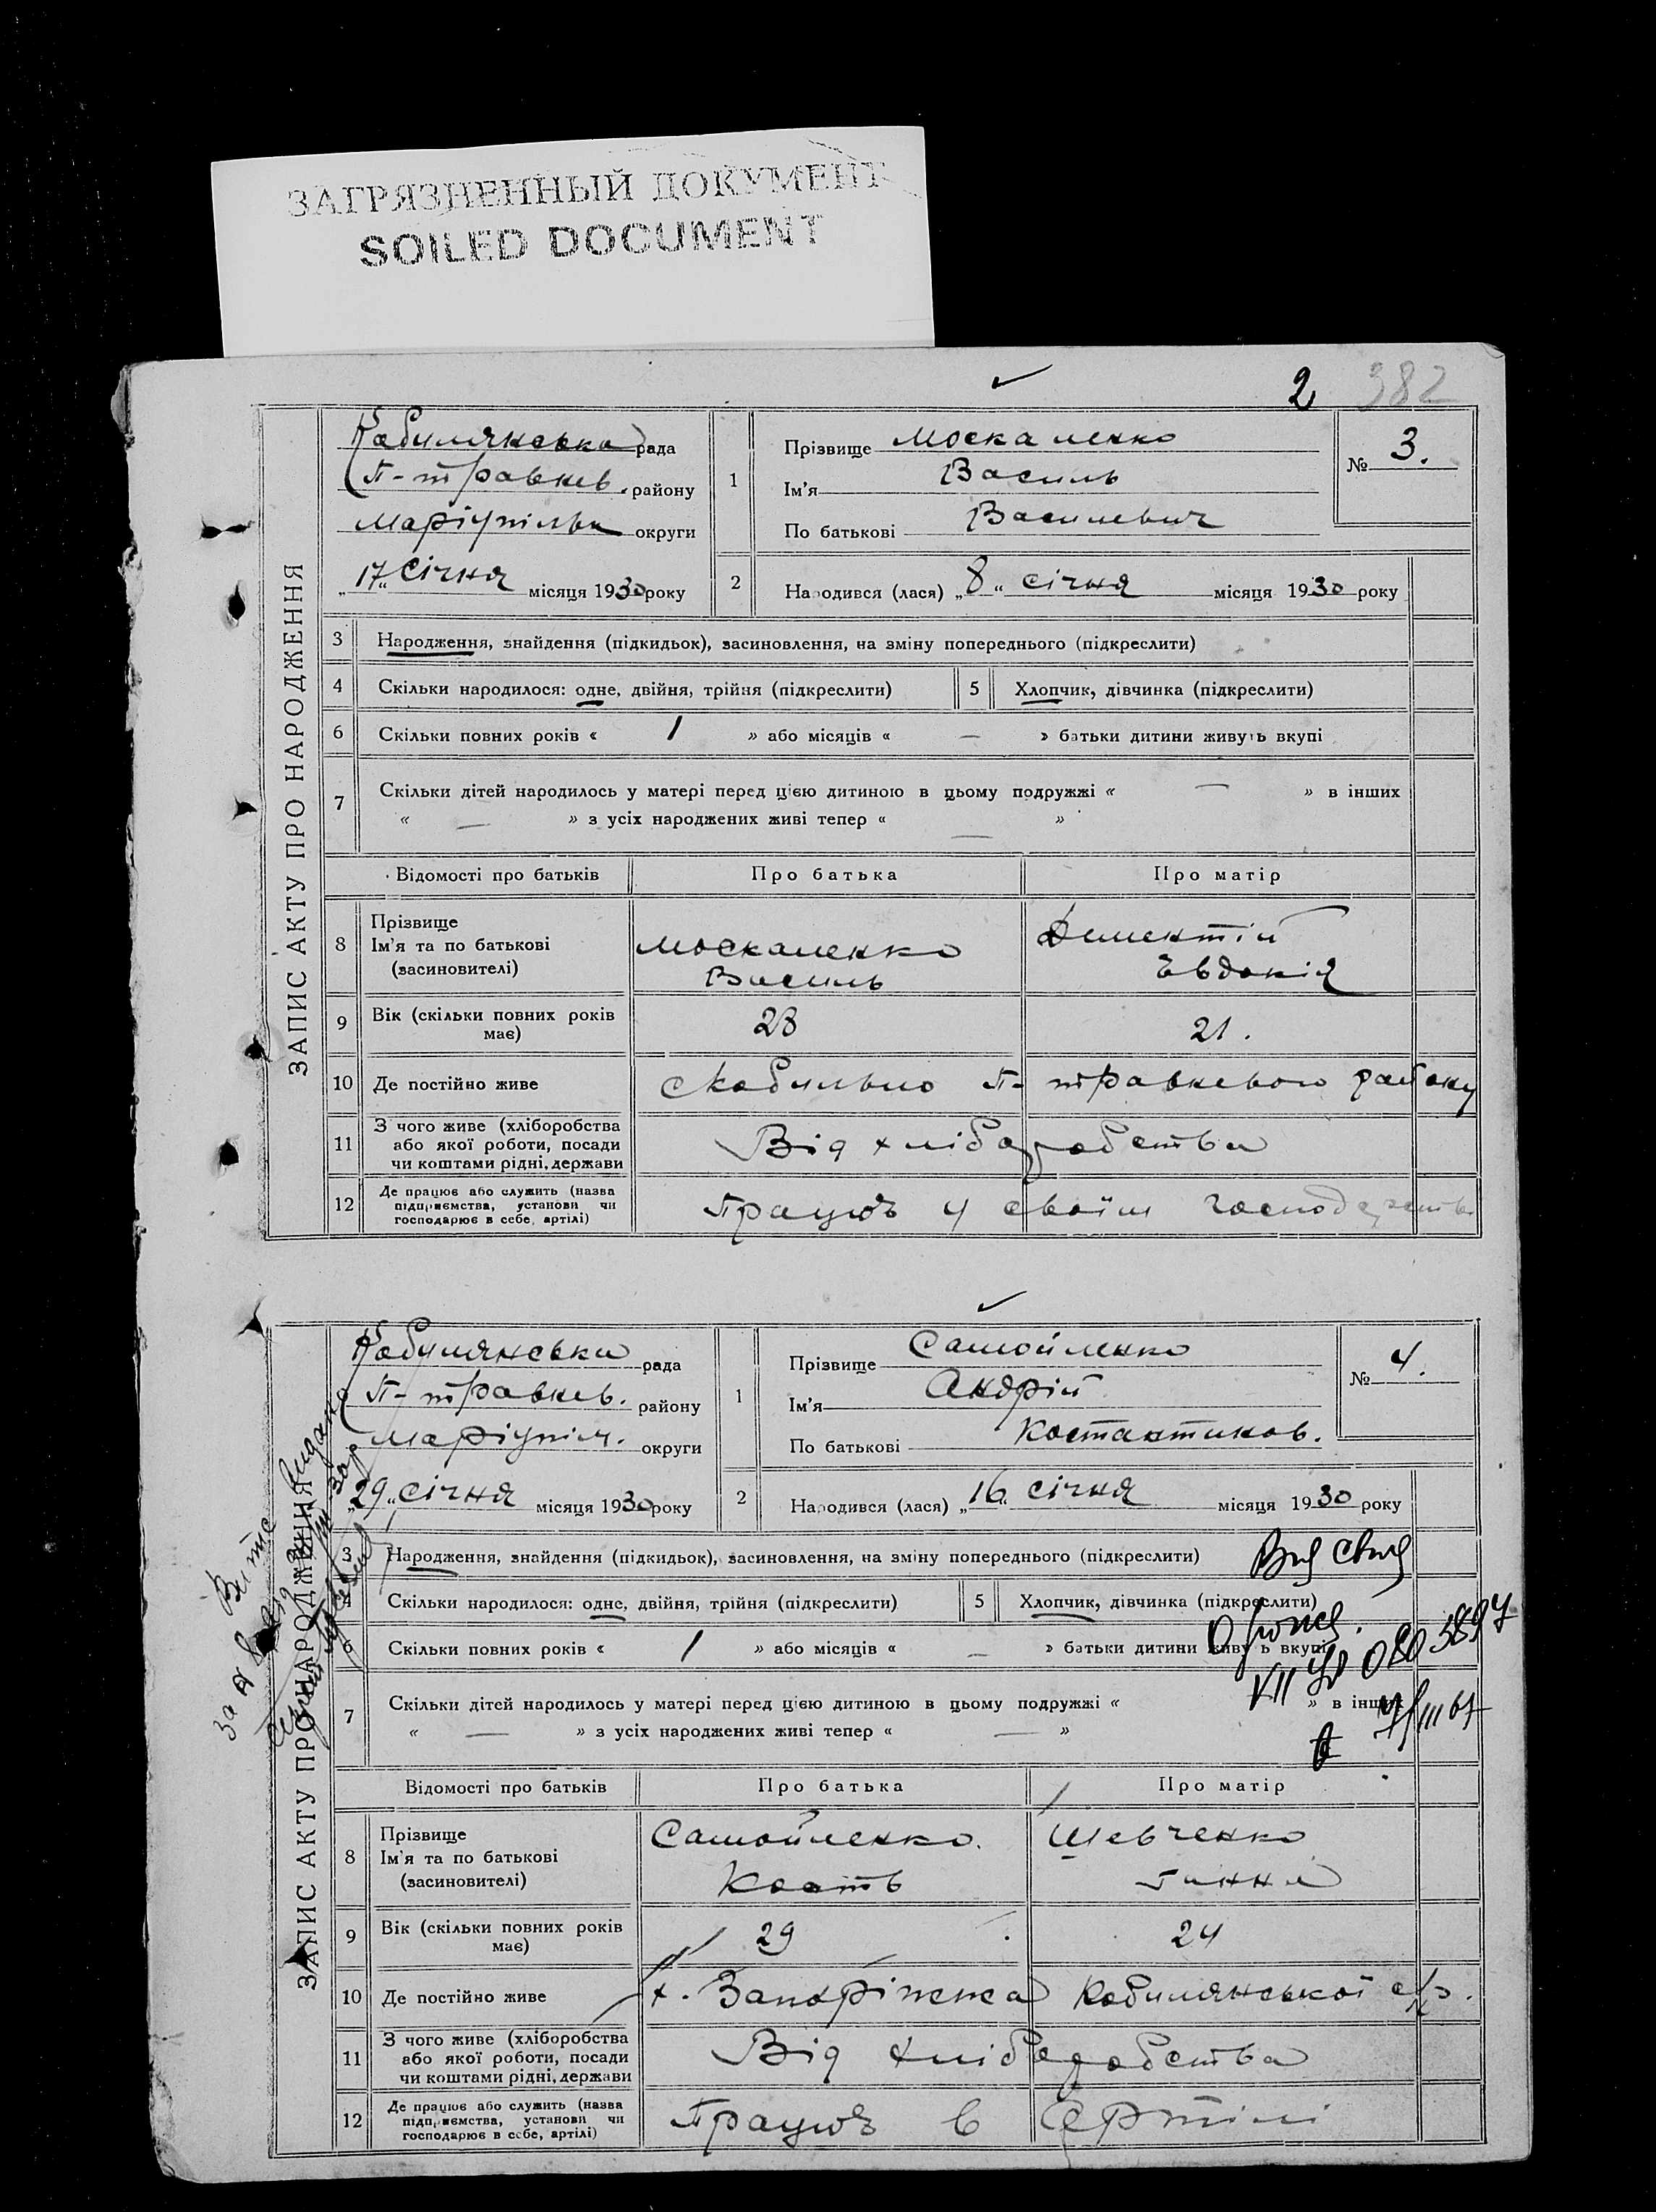 ЗАГРЯЗНЕННЫЙ ДОКУМЕНТ
SOILED DOCUMENT
2 382
ЗАПИС АКТУ ПРО НАРОДЖЕННЯ
Кобилянська рада
П-травнев. району
Маріупільськ округи
„17“ січня місяця 1930 року
1
Прізвище Москаленко
Ім'я Василь
По батькові Василевич
№ 3.
2 Народився (лася) „8“ січня місяця 1930 року
3 Народження, знайдення (підкидьок), засиновлення, на зміну попереднього (підкреслити)
4 Скільки народилося: одне, двійня, трійня (підкреслити) 5 Хлопчик, дівчинка (підкреслити)
6 Скільки повних років « 1 » або місяців « — » батьки дитини живуть вкупі
7 Скільки дітей народилось у матері перед цією дитиною в цьому подружжі « — » в інших
« — » з усіх народжених живі тепер « — »
Відомості про батьків Про батька Про матір
8 Прізвище
Ім'я та по батькові
(засиновителі)
Москаленко
Василь
Дементій
Евдокія
9 Вік (скільки повних років
має)
28 21.
10 Де постійно живе
с Кобильно П-травневого району
11 З чого живе (хліборобства
або якої роботи, посади
чи коштами рідні, держави
Від хліборобства
12 Де працює або служить (назва
підприємства, установи чи
господарює в себе, артілі)
Працює у своїм господарстві
ЗАПИС АКТУ ПРО НАРОДЖЕННЯ
Кобилянська рада
П-травнев. району
Маріупіл. округи
„29“ січня місяця 1930 року
1
Прізвище Самойленко
Ім'я Андрій
По батькові Костантинов.
№ 4.
2 Народився (лася) „16“ січня місяця 1930 року
3 Народження, знайдення (підкидьок), засиновлення, на зміну попереднього (підкреслити)
4 Скільки народилося: одне, двійня, трійня (підкреслити) 5 Хлопчик, дівчинка (підкреслити)
6 Скільки повних років « 1 » або місяців « — » батьки дитини живуть вкупі
7 Скільки дітей народилось у матері перед цією дитиною в цьому подружжі « » в інших
« — » з усіх народжених живі тепер « — »
Відомості про батьків Про батька Про матір
8 Прізвище
Ім'я та по батькові
(засиновителі)
Самойленко.
Кость
Шевченко
Ганна
9 Вік (скільки повних років
має)
29 24
10 Де постійно живе
х. Запоріжжа Кобилянської с/р.
11 З чого живе (хліборобства
або якої роботи, посади
чи коштами рідні, держави
Від хліборобства
12 Де працює або служить (назва
підприємства, установи чи
господарює в себе, артілі)
Працює в артілі